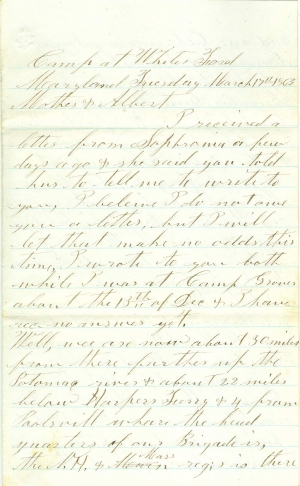 Camp at Whites Ford
Maryland Tuesday March 17th 1863
Mother & Albert
I received a
letter from Sophronia a few
days ago & she said you told
her to tell me to write to
you, I beleive I do not owe
you a letter, but I will
let that make no odds this
time, I wrote to you both
while I was at Camp Grover
about the 13th of Dec & I have
rec no answer yet.
Well, wee are now about 30 miles
from there farther up the
Potomac river & about 22 miles
below Harpers Ferry & 4 from
Poolsvill whare the head
quarters of our Brigade is,
the N.H. & Mass regis is there